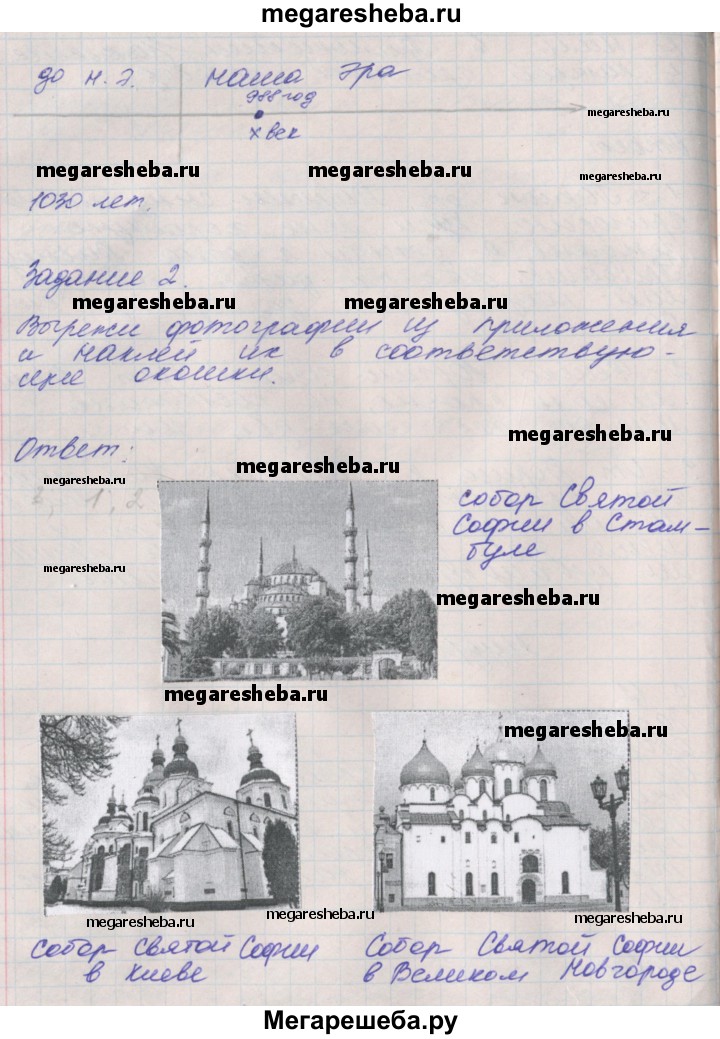 megaresheba.ru
до н.э. наша эра
988 год
megaresheba.ru
X век
megaresheba.ru megaresheba.ru
megaresheba.ru
1030 лет.
Задание 2.
megaresheba.ru megaresheba.ru
Вырежи фотографии из приложения
и наклей их в соответствую-
щие окошки.
megaresheba.ru
Ответ:
megaresheba.ru
1, 2
собор Святой
Софии в Стам-
буле
megaresheba.ru
megaresheba.ru
megaresheba.ru
megaresheba.ru
megaresheba.ru
megaresheba.ru
megaresheba.ru
собор Святой Софии
в Киеве
Собор Святой Софии
в Великом Новгороде
Мегарешеба.ру